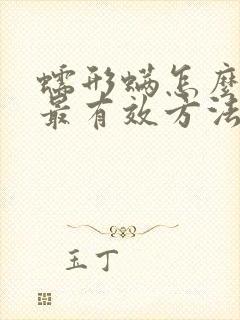 蠕形螨怎麼
最有效方法
玉丁